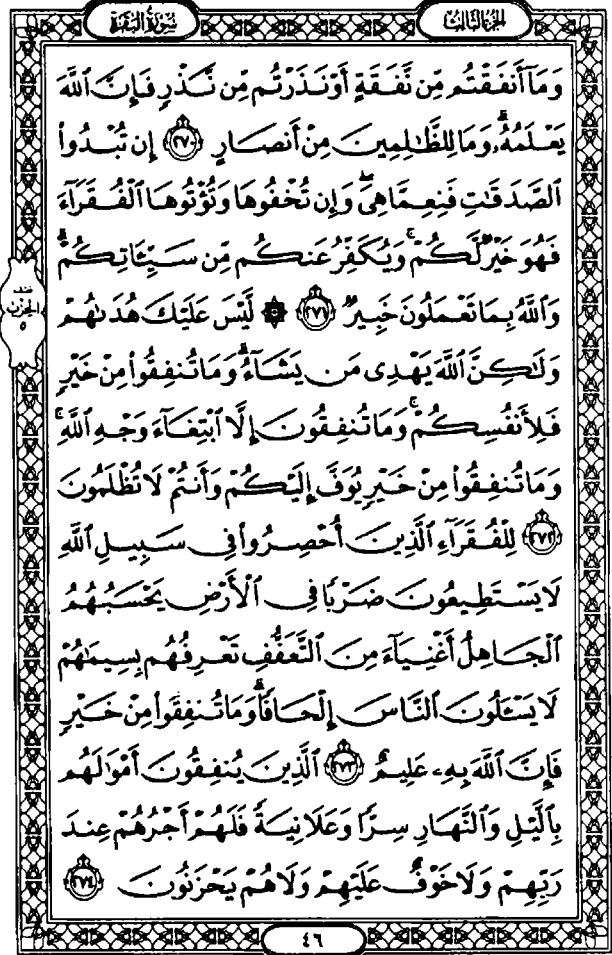 الجزء الثالث سورة البقرة
وَمَآ أَنفَقْتُم مِّن نَّفَقَةٍ أَوْ نَذَرْتُم مِّن نَّذْرٍ فَإِنَّ ٱللَّهَ
يَعْلَمُهُۥ ۗ وَمَا لِلظَّٰلِمِينَ مِنْ أَنصَارٍ ﴿٢٧٠﴾ إِن تُبْدُوا۟
ٱلصَّدَقَٰتِ فَنِعِمَّا هِىَ ۖ وَإِن تُخْفُوهَا وَتُؤْتُوهَا ٱلْفُقَرَآءَ
فَهُوَ خَيْرٌ لَّكُمْ ۚ وَيُكَفِّرُ عَنكُم مِّن سَيِّـَٔاتِكُمْ ۗ
وَٱللَّهُ بِمَا تَعْمَلُونَ خَبِيرٌ ﴿٢٧١﴾ ۞ لَّيْسَ عَلَيْكَ هُدَىٰهُمْ
وَلَٰكِنَّ ٱللَّهَ يَهْدِى مَن يَشَآءُ ۗ وَمَا تُنفِقُوا۟ مِنْ خَيْرٍ
فَلِأَنفُسِكُمْ ۚ وَمَا تُنفِقُونَ إِلَّا ٱبْتِغَآءَ وَجْهِ ٱللَّهِ ۚ
وَمَا تُنفِقُوا۟ مِنْ خَيْرٍ يُوَفَّ إِلَيْكُمْ وَأَنتُمْ لَا تُظْلَمُونَ
﴿٢٧٢﴾ لِلْفُقَرَآءِ ٱلَّذِينَ أُحْصِرُوا۟ فِى سَبِيلِ ٱللَّهِ
لَا يَسْتَطِيعُونَ ضَرْبًا فِى ٱلْأَرْضِ يَحْسَبُهُمُ
ٱلْجَاهِلُ أَغْنِيَآءَ مِنَ ٱلتَّعَفُّفِ تَعْرِفُهُم بِسِيمَٰهُمْ
لَا يَسْـَٔلُونَ ٱلنَّاسَ إِلْحَافًا ۗ وَمَا تُنفِقُوا۟ مِنْ خَيْرٍ
فَإِنَّ ٱللَّهَ بِهِۦ عَلِيمٌ ﴿٢٧٣﴾ ٱلَّذِينَ يُنفِقُونَ أَمْوَٰلَهُم
بِٱلَّيْلِ وَٱلنَّهَارِ سِرًّا وَعَلَانِيَةً فَلَهُمْ أَجْرُهُمْ عِندَ
رَبِّهِمْ وَلَا خَوْفٌ عَلَيْهِمْ وَلَا هُمْ يَحْزَنُونَ ﴿٢٧٤﴾
الحزب
٥
٤٦